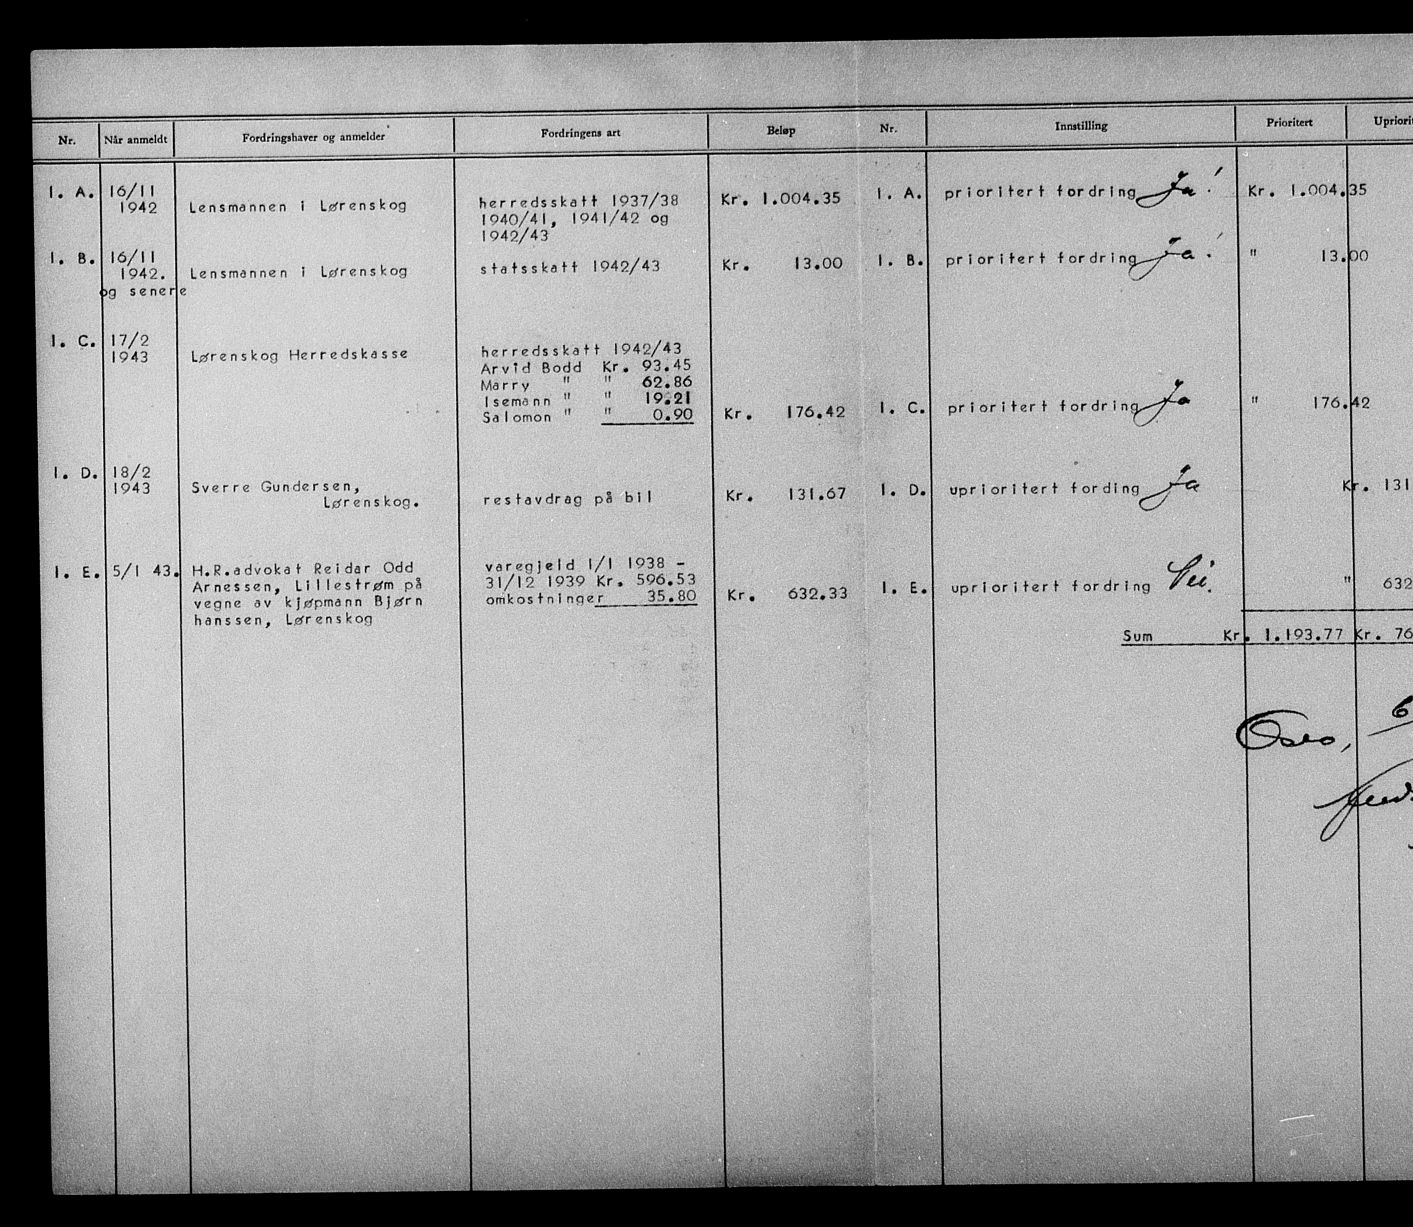 Nr. Når anmeldt Fordringshaver og anmelder Fordringens art Beløp Nr. Innstilling Prioritert Upriorit
I. A. 16/11 1942 Lensmannen i Lørenskog herredsskatt 1937/38 Kr. 1.004.35 I. A. prioritert fordring Ja! Kr. 1.004.35
1940/41, 1941/42 og
1942/43
I. B. 16/11 1942. Lensmannen i Lørenskog statsskatt 1942/43 Kr. 13.00 I. B. prioritert fordring Ja! " 13.00
og senere
I. C. 17/2 1943 Lørenskog Herredskasse herredsskatt 1942/43
Arvid Bodd Kr. 93.45
Marry " " 62.86
Isemann " " 19.21
Salomon " " 0.90 Kr. 176.42 I. C. prioritert fordring Ja " 176.42
I. D. 18/2
1943 Sverre Gundersen,
Lørenskog. restavdrag på bil Kr. 131.67 I. D. uprioritert fording Ja Kr. 131
I. E. 5/1 43. H.R.advokat Reidar Odd varegjeld 1/1 1938 -
Arnessen, Lillestrøm på 31/12 1939 Kr. 596.53
vegne av kjøpmann Bjørn omkostninger 35.80 Kr. 632.33 I. E. uprioritert fordring Nei. " 632
hanssen, Lørenskog
Sum Kr. 1.193.77 Kr. 76
Oslo, 6